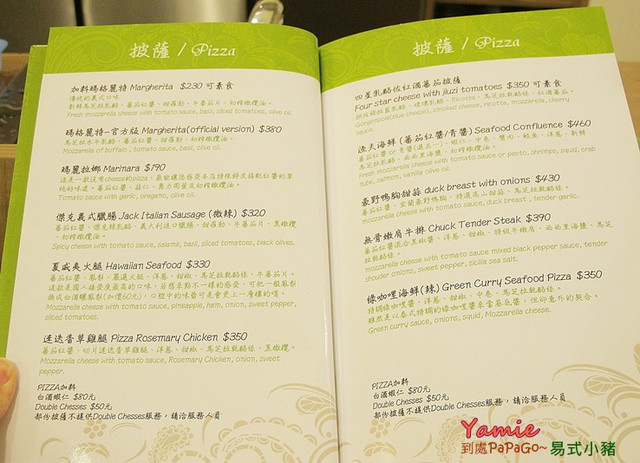 披薩 / Pizza
加料瑪格麗特 Margherita $230 可素食
傳統的義式口味
新鮮馬芝拉乳酪、蕃茄紅醬、甜羅勒、牛蕃茄片、初榨橄欖油。
Fresh mozzarella cheese with tomato sauce, basil, sliced tomatoes, olive oil.
瑪格麗特-官方版 Margherita(official version) $380
馬芝拉水牛乳酪、蕃茄紅醬、甜羅勒、初榨橄欖油。
Mozzarella of buffalo, tomato sauce, basil, olive oil.
瑪麗拉娜 Marinara $190
Tomato sauce with garlic, oregano, olive oil.
傑克義式臘腸 Jack Italian Sausage (微辣) $320
Spicy cheese with tomato sauce, salame, basil, sliced tomatoes, black olives.
夏威夷火腿 Hawaiian Seafood $330
換成台灣鳳梨(加價60元)，口腔中的味蕾可是會愛上一層樓的唷。
Mozzarella cheese with tomato sauce, pineapple, ham, onion, sweet pepper,
sliced tomatoes.
迷迭香草雞腿 Pizza Rosemary Chicken $350
蕃茄紅醬、切片迷迭香草雞腿、洋蔥、甜椒、馬芝拉乳酪絲、黑橄欖。
Mozzarella cheese with tomato sauce, Rosemary Chicken, onion, sweet
pepper.
PIZZA加料
白酒蝦仁 $80元
Double Chesses $50元
部份披薩不提供Double Chesses服務，請洽服務人員
披薩 / Pizza
四星乳酪佐紅酒蕃茄披薩
Four star cheese with jiuzi tomatoes $350 可素食
Gongonzola(blue cheese), smoked cheese, ricotta, mozzarella, cherry
sauce.
漁夫海鮮 (蕃茄紅醬/青醬) Seafood Confluence $460
Fresh mozzarella cheese with tomato sauce or pesto, shrimps, squid, crab
tube, salmon, vanilla olive oil.
豪野鴨胸甜蒜 duck breast with onions $430
mozzarella cheese with tomato sauce, duck breast, tender garlic.
無骨嫩肩牛排 Chuck Tender Steak $390
mozzarella cheese with tomato sauce mixed black pepper sauce, tender
shoulder onions, sweet pepper, sicilia sea salt.
綠咖哩海鮮(辣) Green Curry Seafood Pizza $350
特調綠咖哩醬、洋蔥、甜椒、中卷、馬芝拉乳酪絲。
Green curry sauce, onions, squid, Mozzarella cheese.
PIZZA加料
白酒蝦仁 $80元
Double Chesses $50元
部份披薩不提供Double Chesses服務，請洽服務人員
Yamie
到處PaPaGo~易式小豬